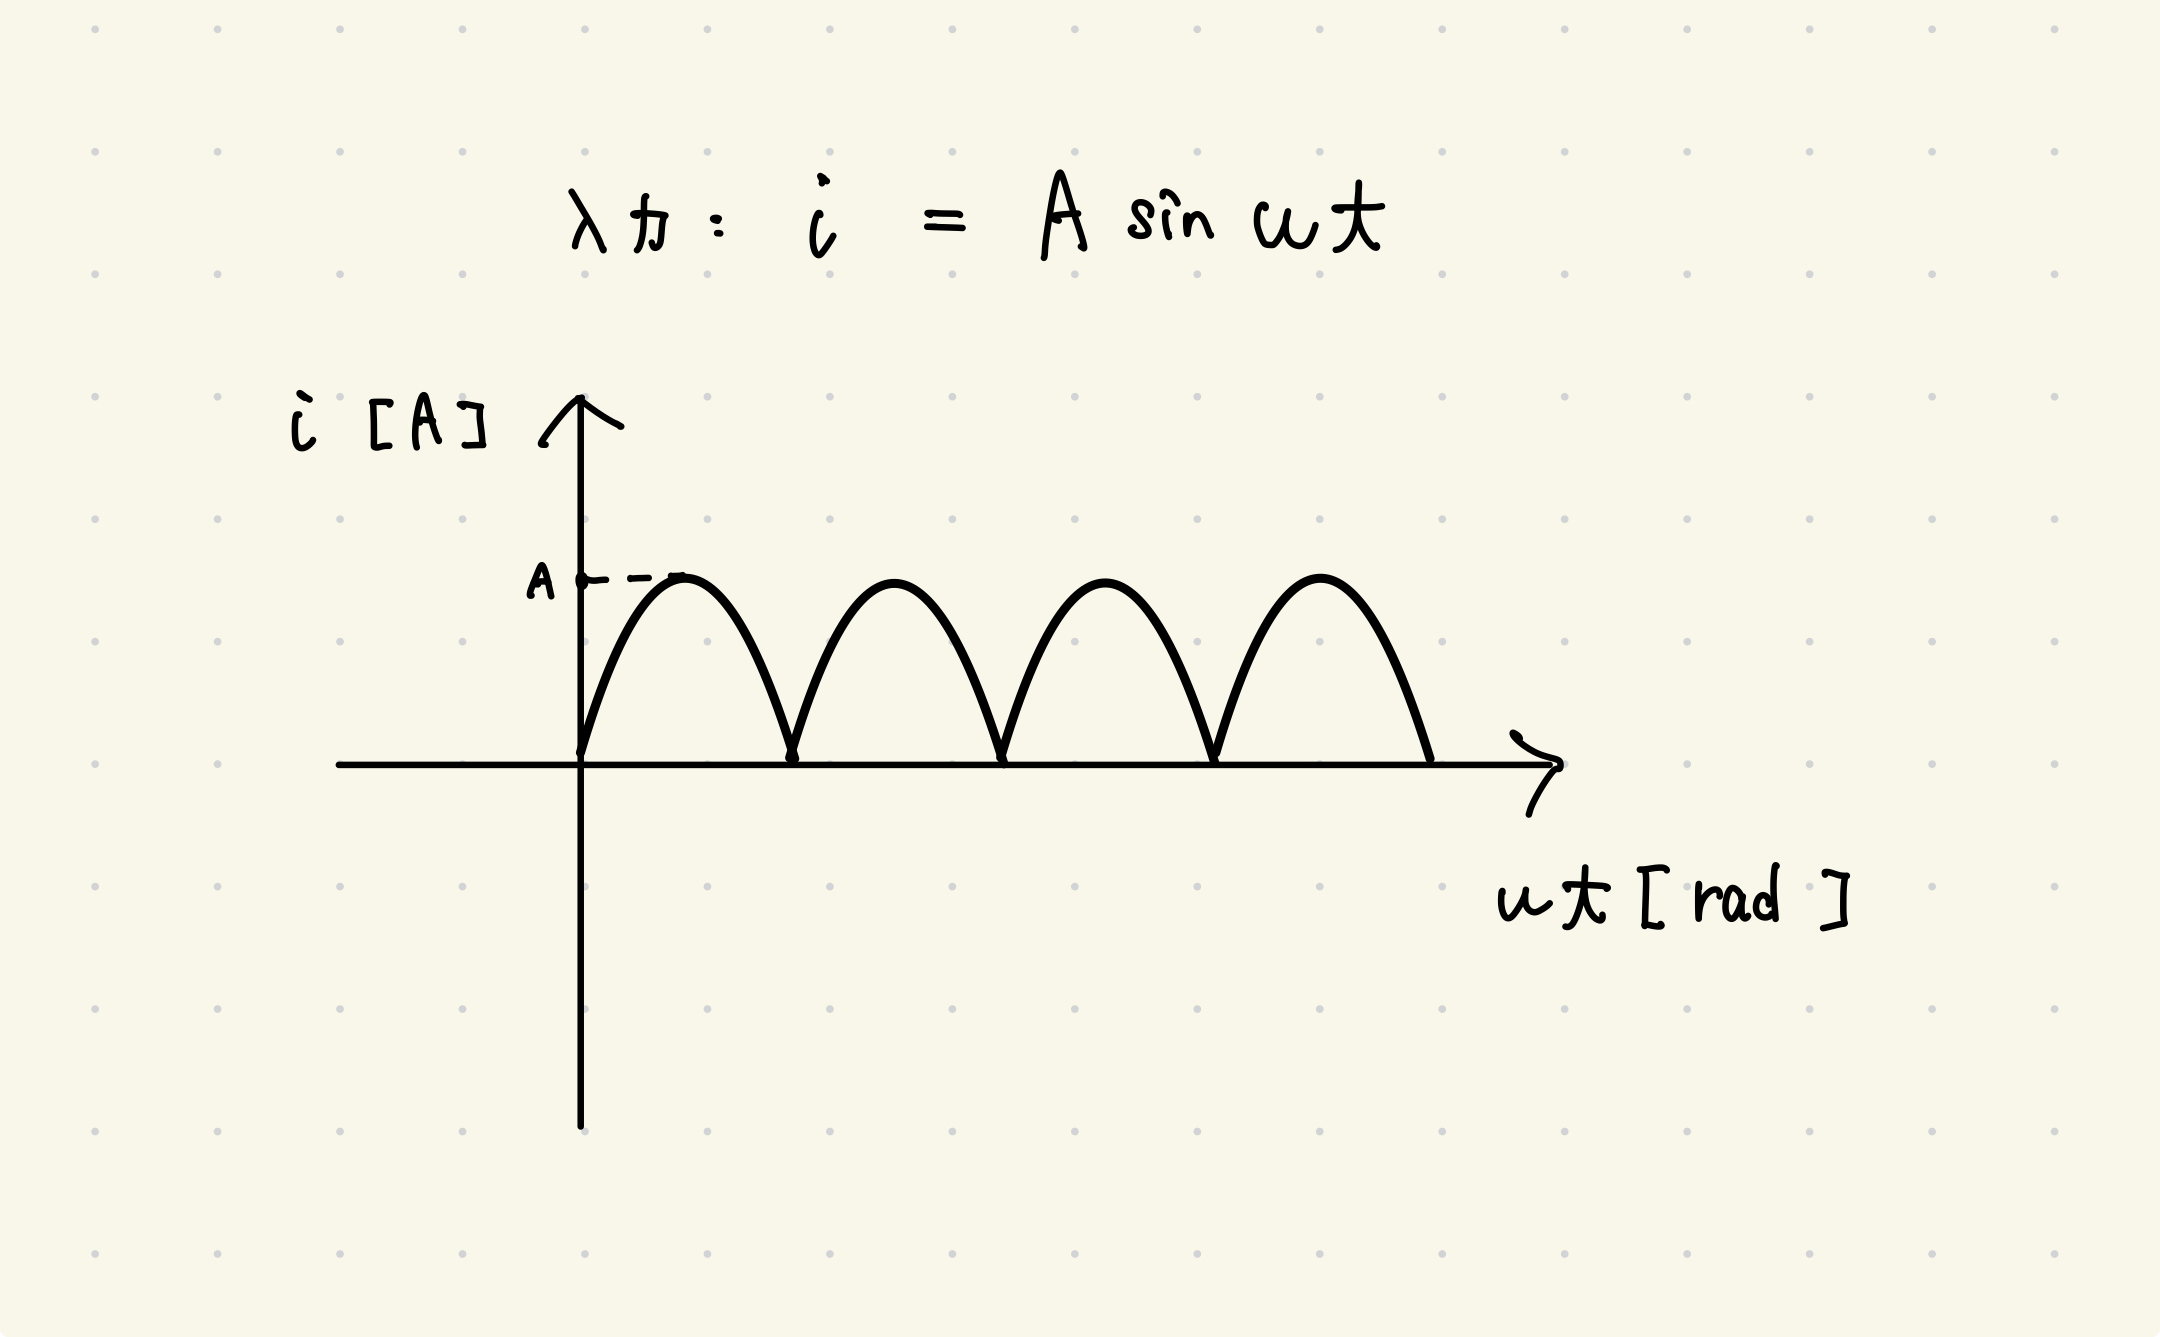 入力: i = A sin ωt
i [A]
A
ωt [rad]